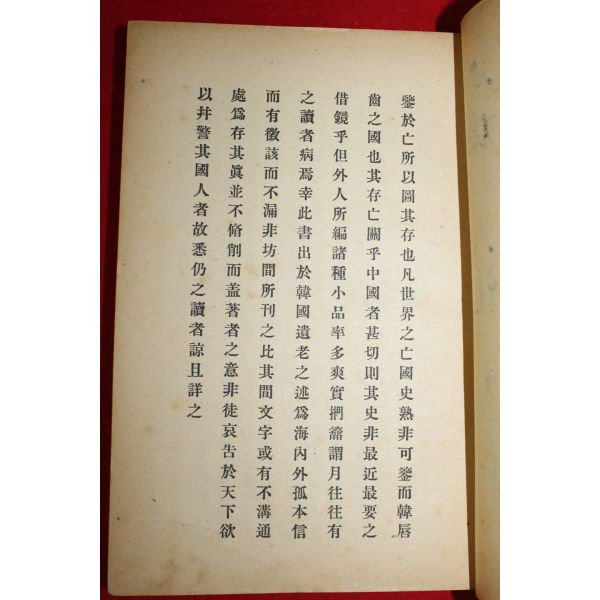 鑒於亡所以圖其存也凡世界之亡國史熟非可鑒而韓唇
齒之國也其存亡關乎中國者甚切則其史非最近最要之
借鏡乎但外人所編諸種小品率多爽實捫籥謂月往往有
之讀者病焉幸此書出於韓國遺老之述爲海內外孤本信
而有徵該而不漏非坊間所刊之比其間文字或有不溝通
處爲存其眞並不脩削而盖著者之意非徒哀告於天下欲
以幷警其國人者故悉仍之讀者諒且詳之